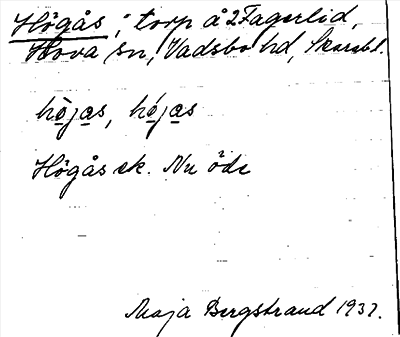 Högås, torp å 2 Fagerlid,
Hova sn, Vadsbo hd, Skarabl.
hö̀jas, hö́jas
Högås ek. Nu öde
Maja Bergstrand 1937.